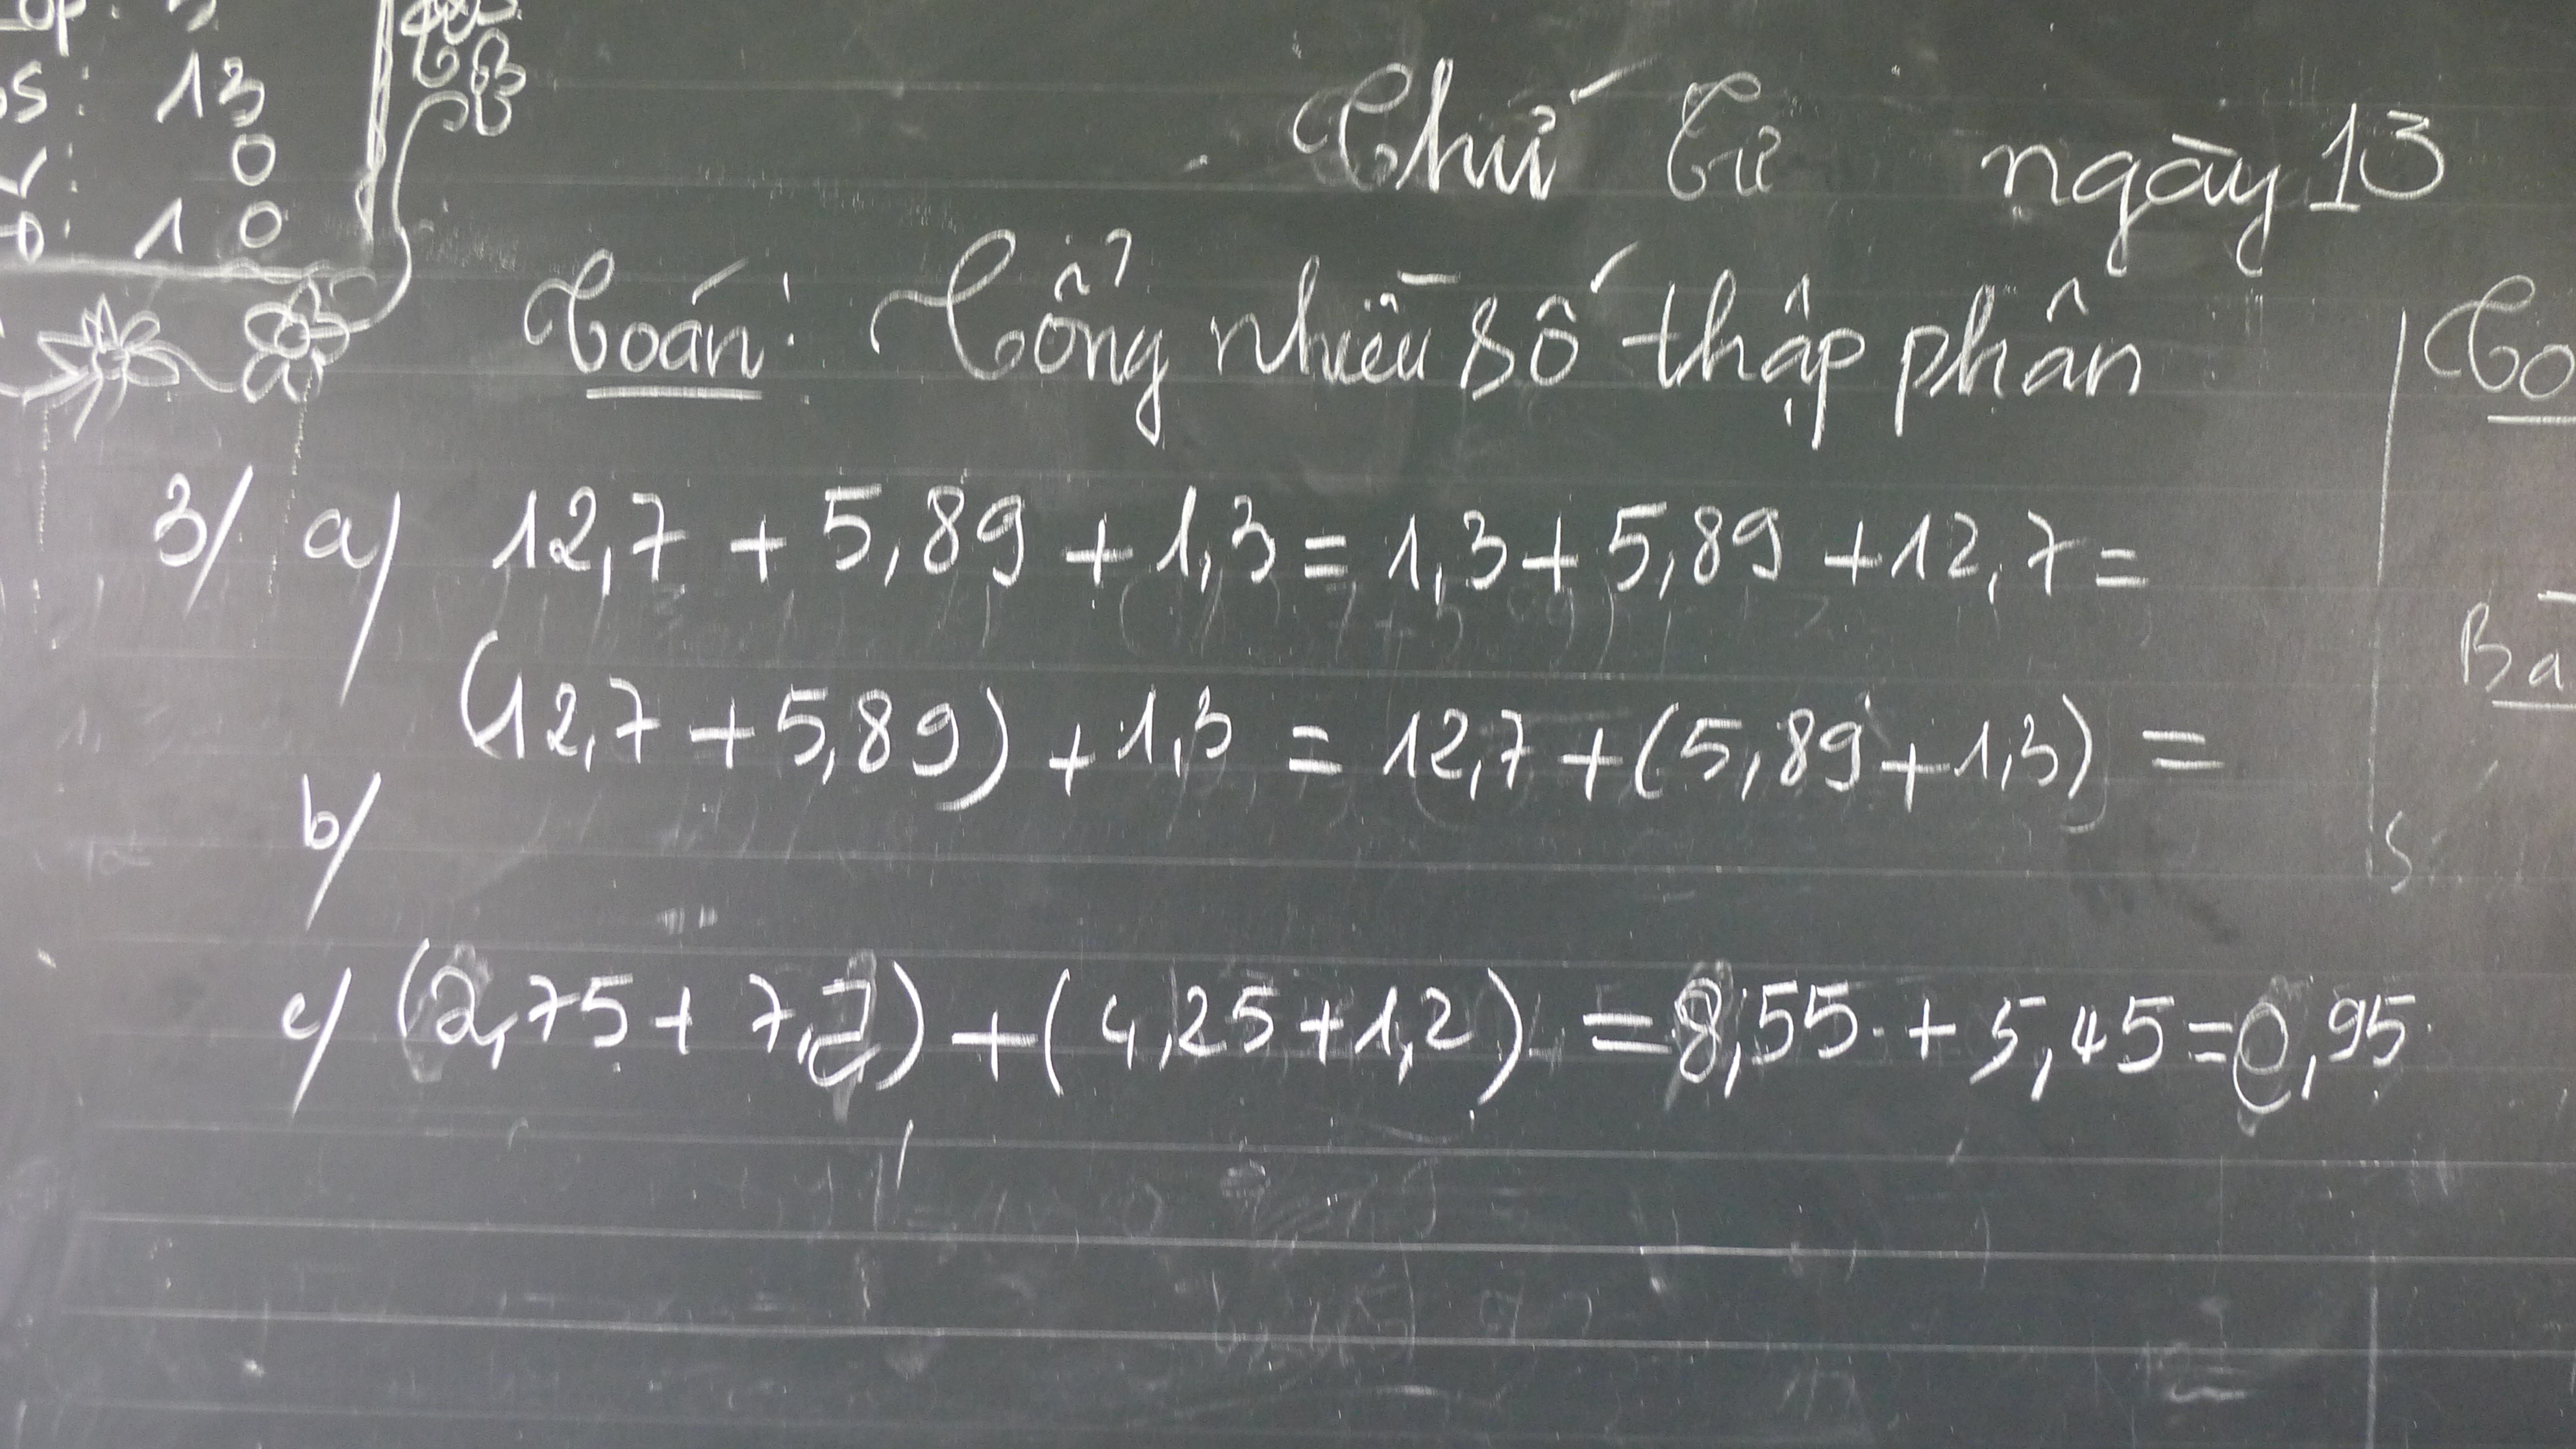 13
0
10
Thứ Tư ngày 13
Toán: Tổng nhiều số thập phân
3/ a/ 12,7 + 5,89 + 1,3 = 1,3 + 5,89 + 12,7 =
(12,7 + 5,89) + 1,3 = 12,7 + (5,89 + 1,3) =
b/
c/ (2,75 + 7,2) + (4,25 + 1,2) = 8,55 + 5,45 = 0,95